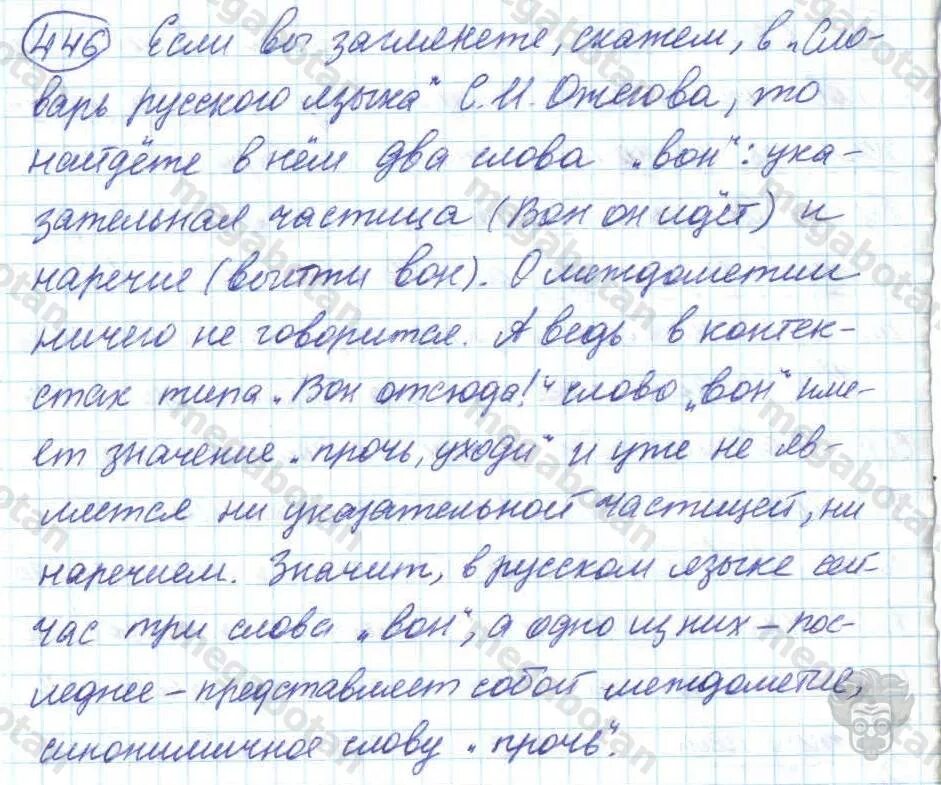 446 Если вы заглянете, скажем, в „Сло-
варь русского языка" С.И. Ожегова, то
найдёте в нём два слова „вон": ука-
зательная частица (Вон он идёт) и
наречие (выйти вон). О междометии
ничего не говорится. А ведь в контек-
стах типа „Вон отсюда!" слово „вон" име-
ет значение „прочь, уходи" и уже не яв-
ляется ни указательной частицей, ни
наречием. Значит, в русском языке сей-
час три слова „вон", а одно из них – пос-
леднее – представляет собой междометие,
синонимичное слову „прочь".
megabotan